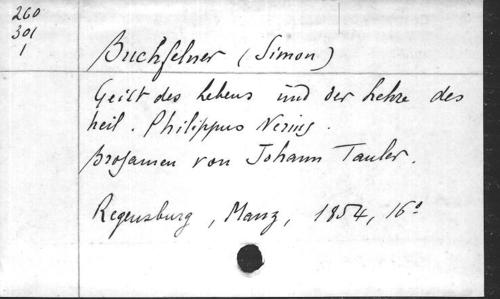 260
301
1
Buchfelner (Simon)
Geist des Lebens und der Lehre des
heil. Philippus Nerius.
Brosamen von Johann Tauler.
Regensburg, Manz, 1854, 16°